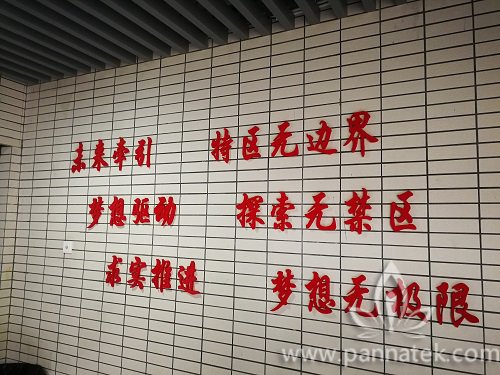 未来牵引 特区无边界
梦想驱动 探索无禁区
求实推进 梦想无极限
www.pannatek.com